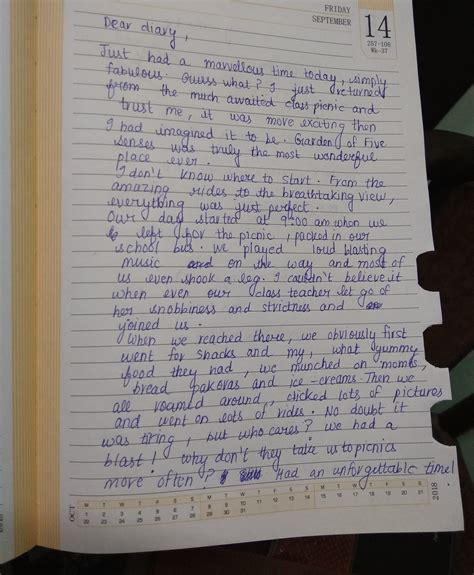 FRIDAY
SEPTEMBER
14
257-108
Wk-37
Dear diary,
Just had a marvellous time today, simply
fabulous. Guess what? I just returned
from the much awaited class picnic and
trust me, it was more exciting then
I had imagined it to be. Garden of Five
Senses was truly the most wonderful
place ever.
I don't know where to start. From the
amazing rides to the breathtaking view,
everything was just perfect.
Our day started at 9:00 am when we
left for the picnic, packed in our
school bus. We played loud blasting
music on the way and most of
us even shook a leg. I couldn't believe it
when even our class teacher let go of
her snobbiness and strictness and
joined us.
When we reached there, we obviously first
went for snacks and my, what yummy
food they had, we munched on momos,
bread pakoras and ice-creams. Then we
all roamed around, clicked lots of pictures
and went on lots of rides. No doubt it
was tiring, but who cares? We had a
blast! Why don't they take us to picnics
more often? Had an unforgettable time!
OCT
M T W T F S S M T W T F S S M T W T F S S
1 2 3 4 5 6 7 8 9 10 11 12 13 14 15 16 17 18 19 20 21
22 23 24 25 26 27 28 29 30 31
2018